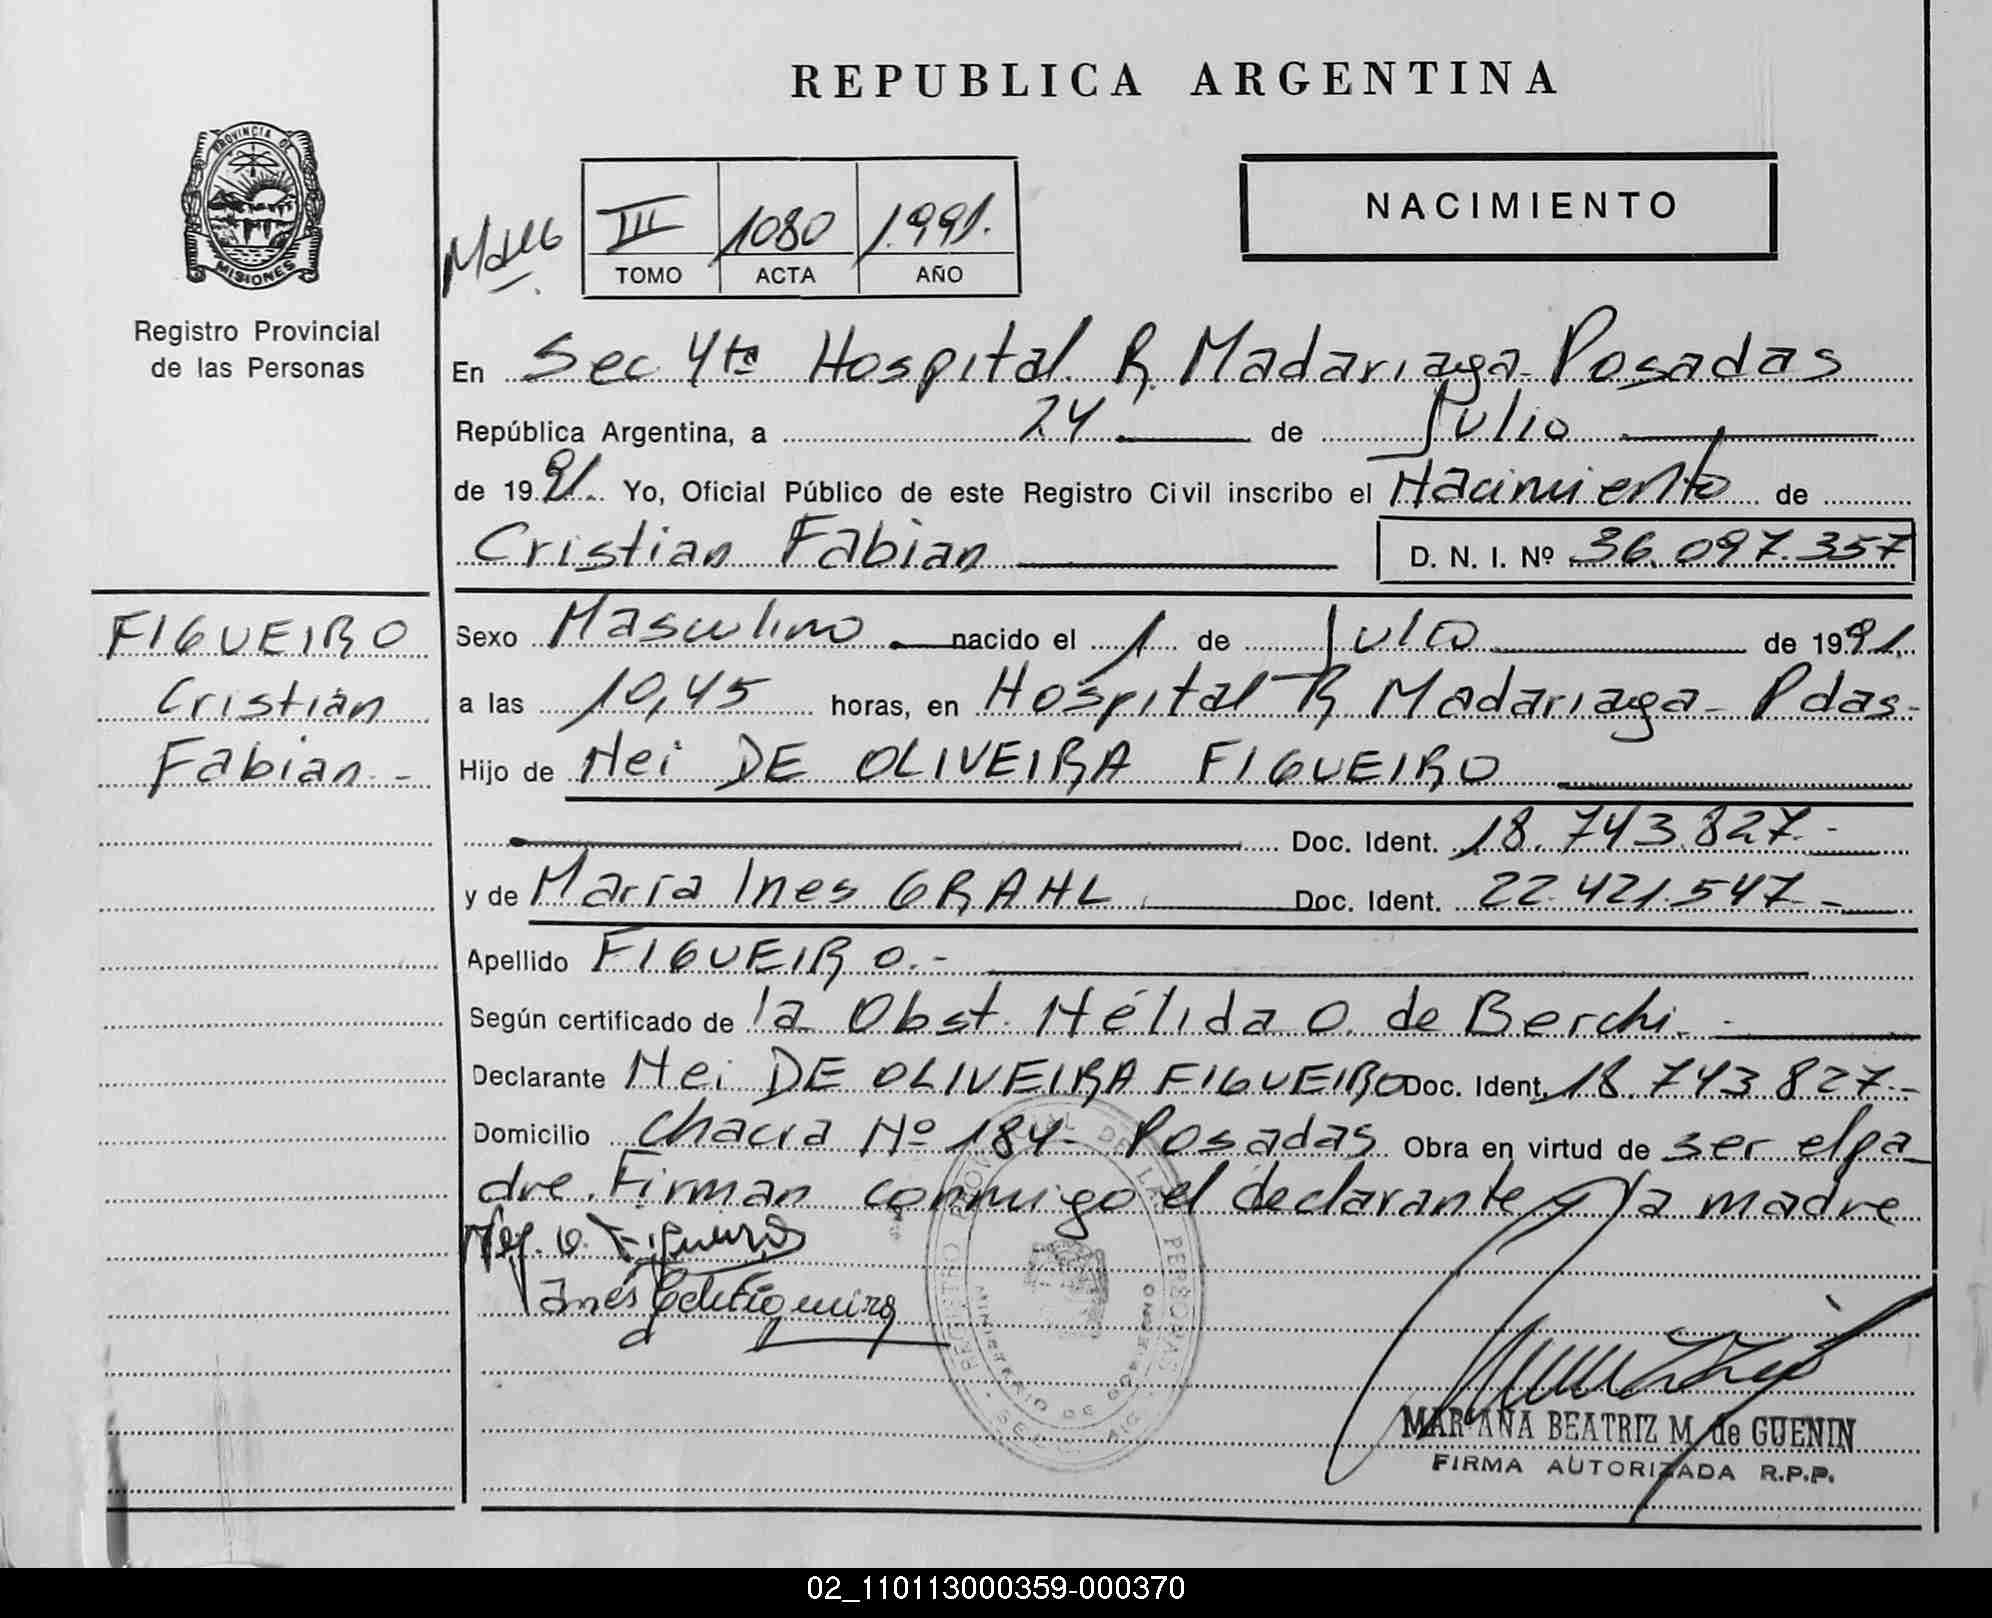 REPUBLICA ARGENTINA
PROVINCIA DE
MISIONES
Registro Provincial
de las Personas
NACIMIENTO
III 1080 1.991.
TOMO ACTA AÑO
En Sec 4ta Hospital R. Madariaga - Posadas
República Argentina, a 24 de Julio
de 1991. Yo, Oficial Público de este Registro Civil inscribo el Nacimiento de
Cristian Fabian D. N. I. Nº 36.097.357
FIGUEIRO
Cristian
Fabian.-
Sexo Masculino nacido el 1 de Julio de 1991.
a las 10,45 horas, en Hospital R Madariaga - Pdas-
Hijo de Nei DE OLIVEIRA FIGUEIRO
Doc. Ident. 18.743.827.-
y de María Ines GRAHL Doc. Ident. 22.421.547.-
Apellido FIGUEIRO.-
Según certificado de la Obst. Nélida O. de Berchi.-
Declarante Nei DE OLIVEIRA FIGUEIRO Doc. Ident. 18.743.827.-
Domicilio Chacra Nº 184- Posadas Obra en virtud de ser el pa-
dre. Firman conmigo el declarante y la madre
REGISTRO PROVINCIAL DE LAS PERSONAS
MINISTERIO DE GOBIERNO
MARIANA BEATRIZ M. de GUENIN
FIRMA AUTORIZADA R.P.P.
02_110113000359-000370